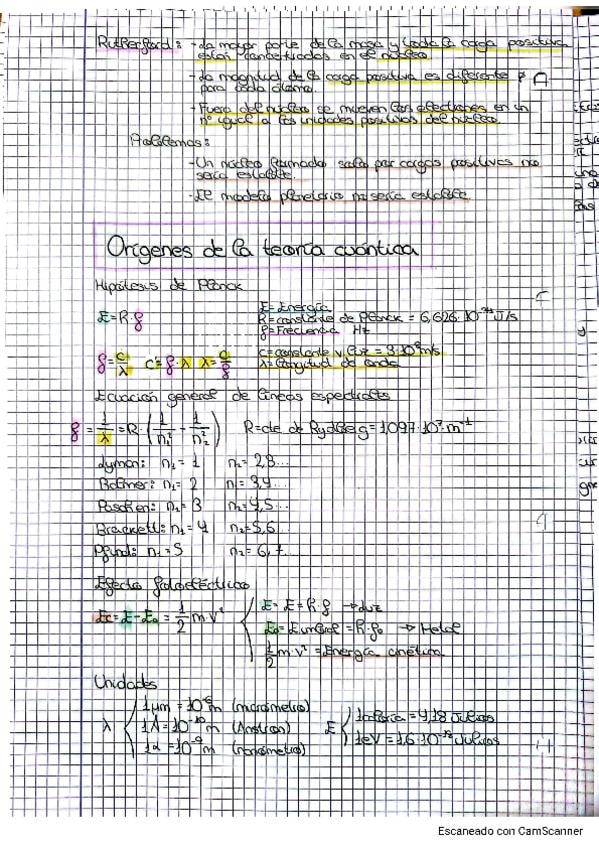 Rutherford: -La mayor parte de la masa y toda la carga positiva
están concentradas en el núcleo.
-La magnitud de la carga positiva es diferente
para cada átomo.
-Fuera del núcleo se mueven los electrones en un
nº igual a las unidades positivas del núcleo.
Problemas:
-Un núcleo formado solo por cargas positivas no
sería estable.
-El modelo planetario no sería estable.
Orígenes de la teoría cuántica
Hipótesis de Planck
E=h·f
E=Energía
h=constante de Planck = 6,626·10⁻³⁴ J/s
f=Frecuencia Hz
f=c/λ c=f·λ λ=c/f
c=constante v. luz = 3·10⁸ m/s
λ=longitud de onda
Ecuación general de líneas espectrales
f = 1/λ = R·(1/n₁² - 1/n₂²) R=cte de Rydberg=1,097·10⁷ m⁻¹
Lyman: n₁=1 n₂=2,3...
Balmer: n₁=2 n₂=3,4...
Paschen: n₁=3 n₂=4,5...
Brackett: n₁=4 n₂=5,6...
Pfund: n₁=5 n₂=6,7...
Efecto fotoeléctrico
Ec=E-E₀=1/2 m·v²
E=E=h·f → luz
E₀=E umbral=h·f₀ → Metal
1/2 m·v²=Energía cinética
Unidades
λ
1μm=10⁻⁶m (micrómetro)
1Å=10⁻¹⁰m
=10⁻⁹m (nanómetro)
E
1caloría=4,18 Julios
1eV=1,6·10⁻¹⁹ Julios
Escaneado con CamScanner